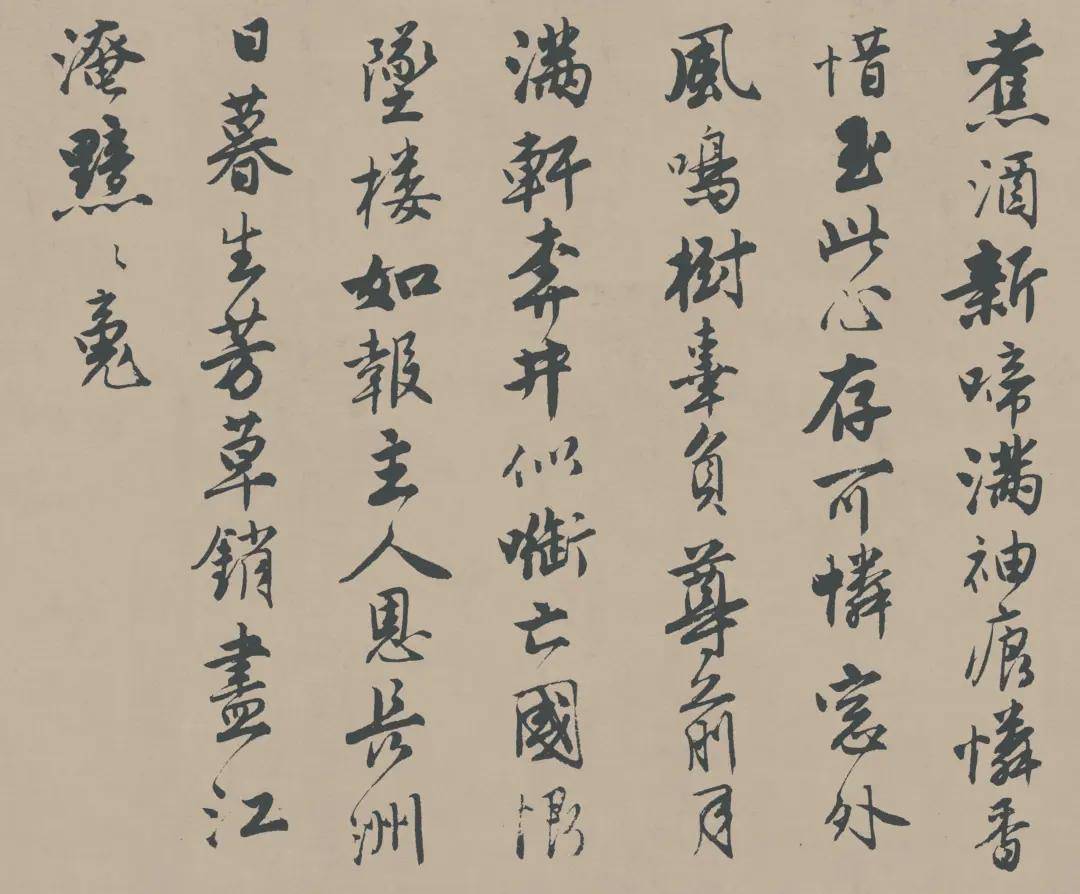 蕉酒新啼滿袖痕憐香
惜玉此心存可憐窓外
風鳴樹辜負尊前月
滿軒奔井似啣亡國恨
墜楼如報主人恩長洲
日暮生芳草銷盡江
淹黯〻魂